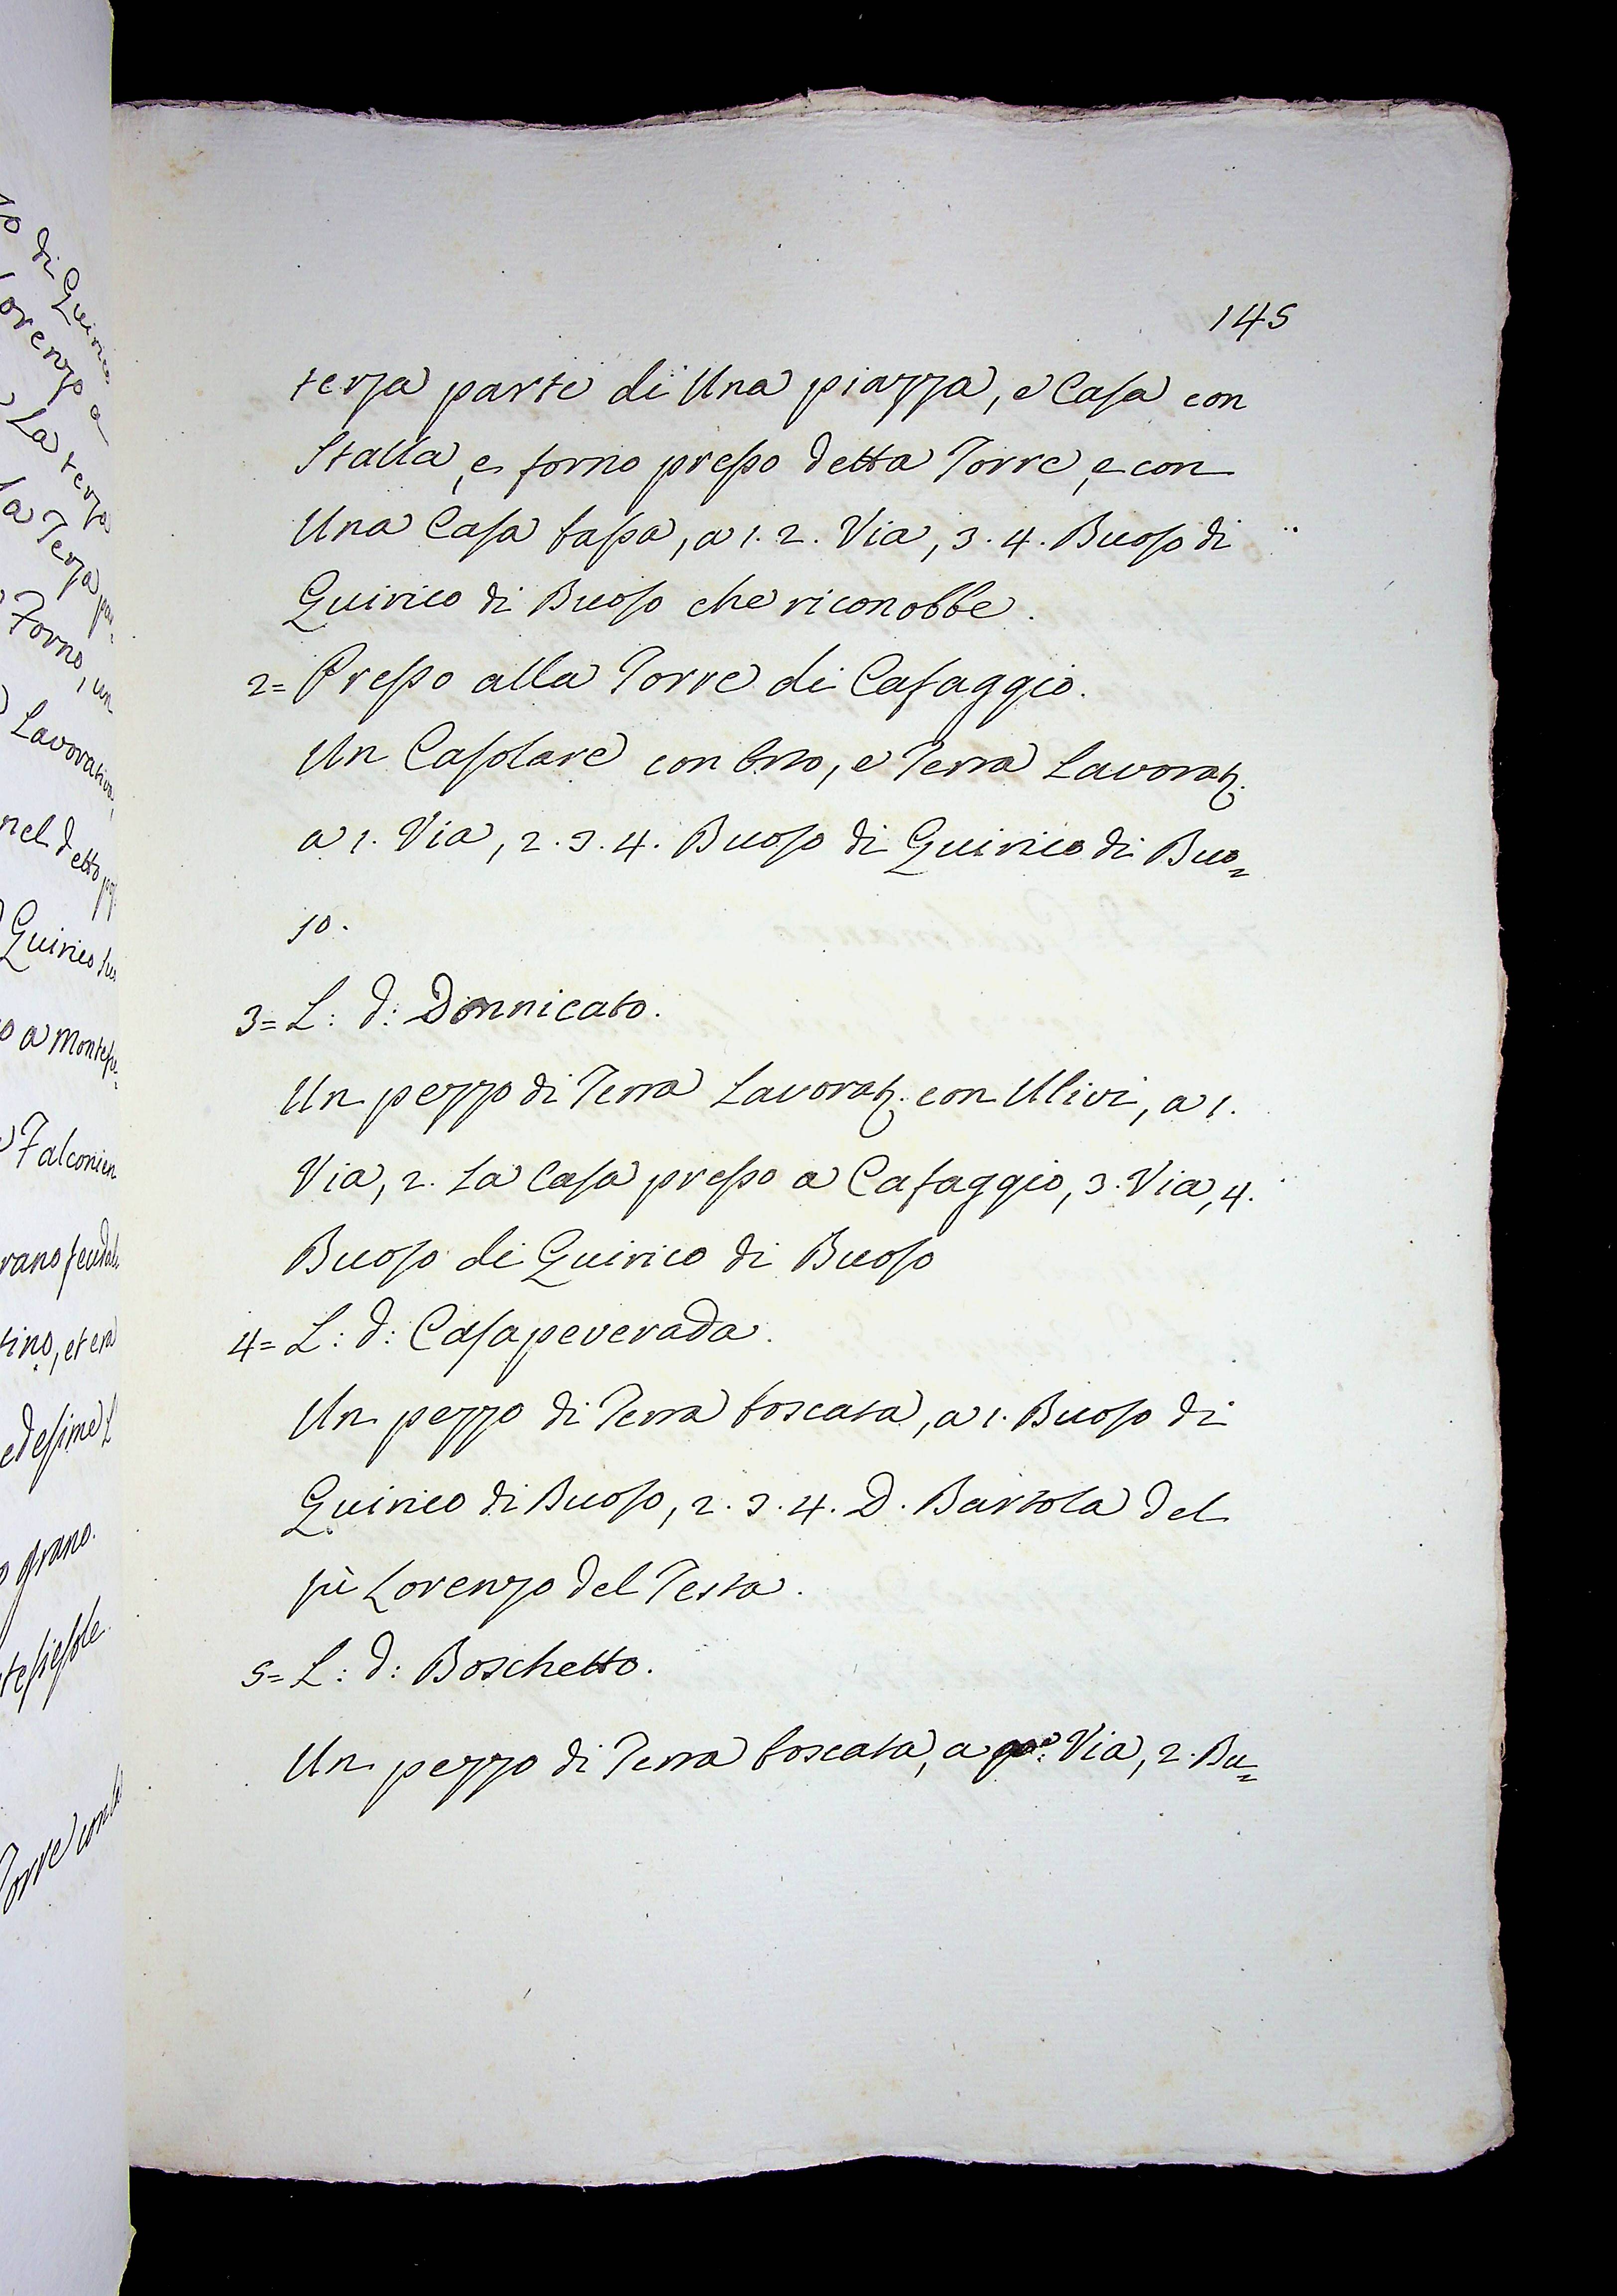 145
terza parte di Una piazza, e Casa con
Stalla, e forno presso detta Torre, e con
Una Casa bassa, a 1. 2. Via, 3. 4. Buoso di
Quirico di Buoso che riconobbe.
2= Presso alla Torre di Cafaggio.
Un Casolare con Orto, e Terra Lavorat.
a 1. Via, 2. 3. 4. Buoso di Quirico di Buo=
so.
3= L: d: Donnicato.
Un pezzo di Terra Lavorat. con Ulivi, a 1.
Via, 2. La Casa presso a Cafaggio, 3. Via, 4.
Buoso di Quirico di Buoso
4= L: d: Casapeverada.
Un pezzo di Terra boscata, a 1. Buoso di
Quirico di Buoso, 2. 3. 4. D. Bartola del
fù Lorenzo del Testa.
5= L: d: Boschetto.
Un pezzo di Terra boscata, a Via, 2. Bu=
di Quirico
orenzo a
La terza
la Terza par=
Forno, un
Lavorativa,
nel detto
Quirico
a Montefie=
Falconieri
rano feudali
tino, et era
edesime
grano.
tefiesole
Torre con la